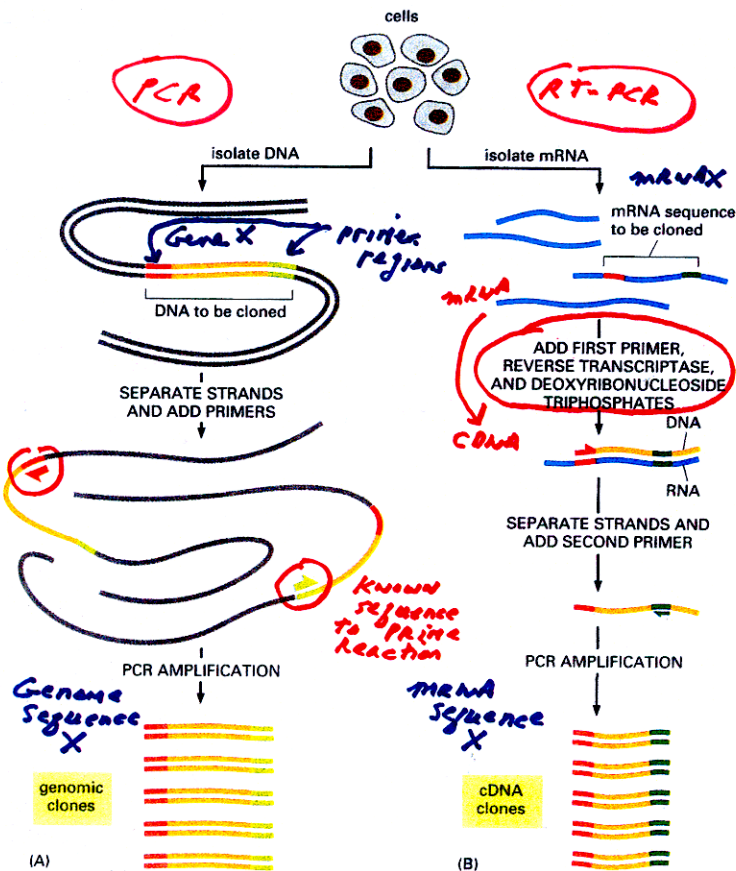 cells
PCR
RT-PCR
isolate DNA
isolate mRNA
mRNAX
Gene X
primer
regions
mRNA sequence
to be cloned
DNA to be cloned
mRNA
ADD FIRST PRIMER,
REVERSE TRANSCRIPTASE,
AND DEOXYRIBONUCLEOSIDE
TRIPHOSPHATES
SEPARATE STRANDS
AND ADD PRIMERS
CDNA
DNA
RNA
SEPARATE STRANDS AND
ADD SECOND PRIMER
Known
sequence
to prime
Reaction
PCR AMPLIFICATION
PCR AMPLIFICATION
Genome
sequence
X
mRNA
sequence
X
genomic
clones
cDNA
clones
(A)
(B)